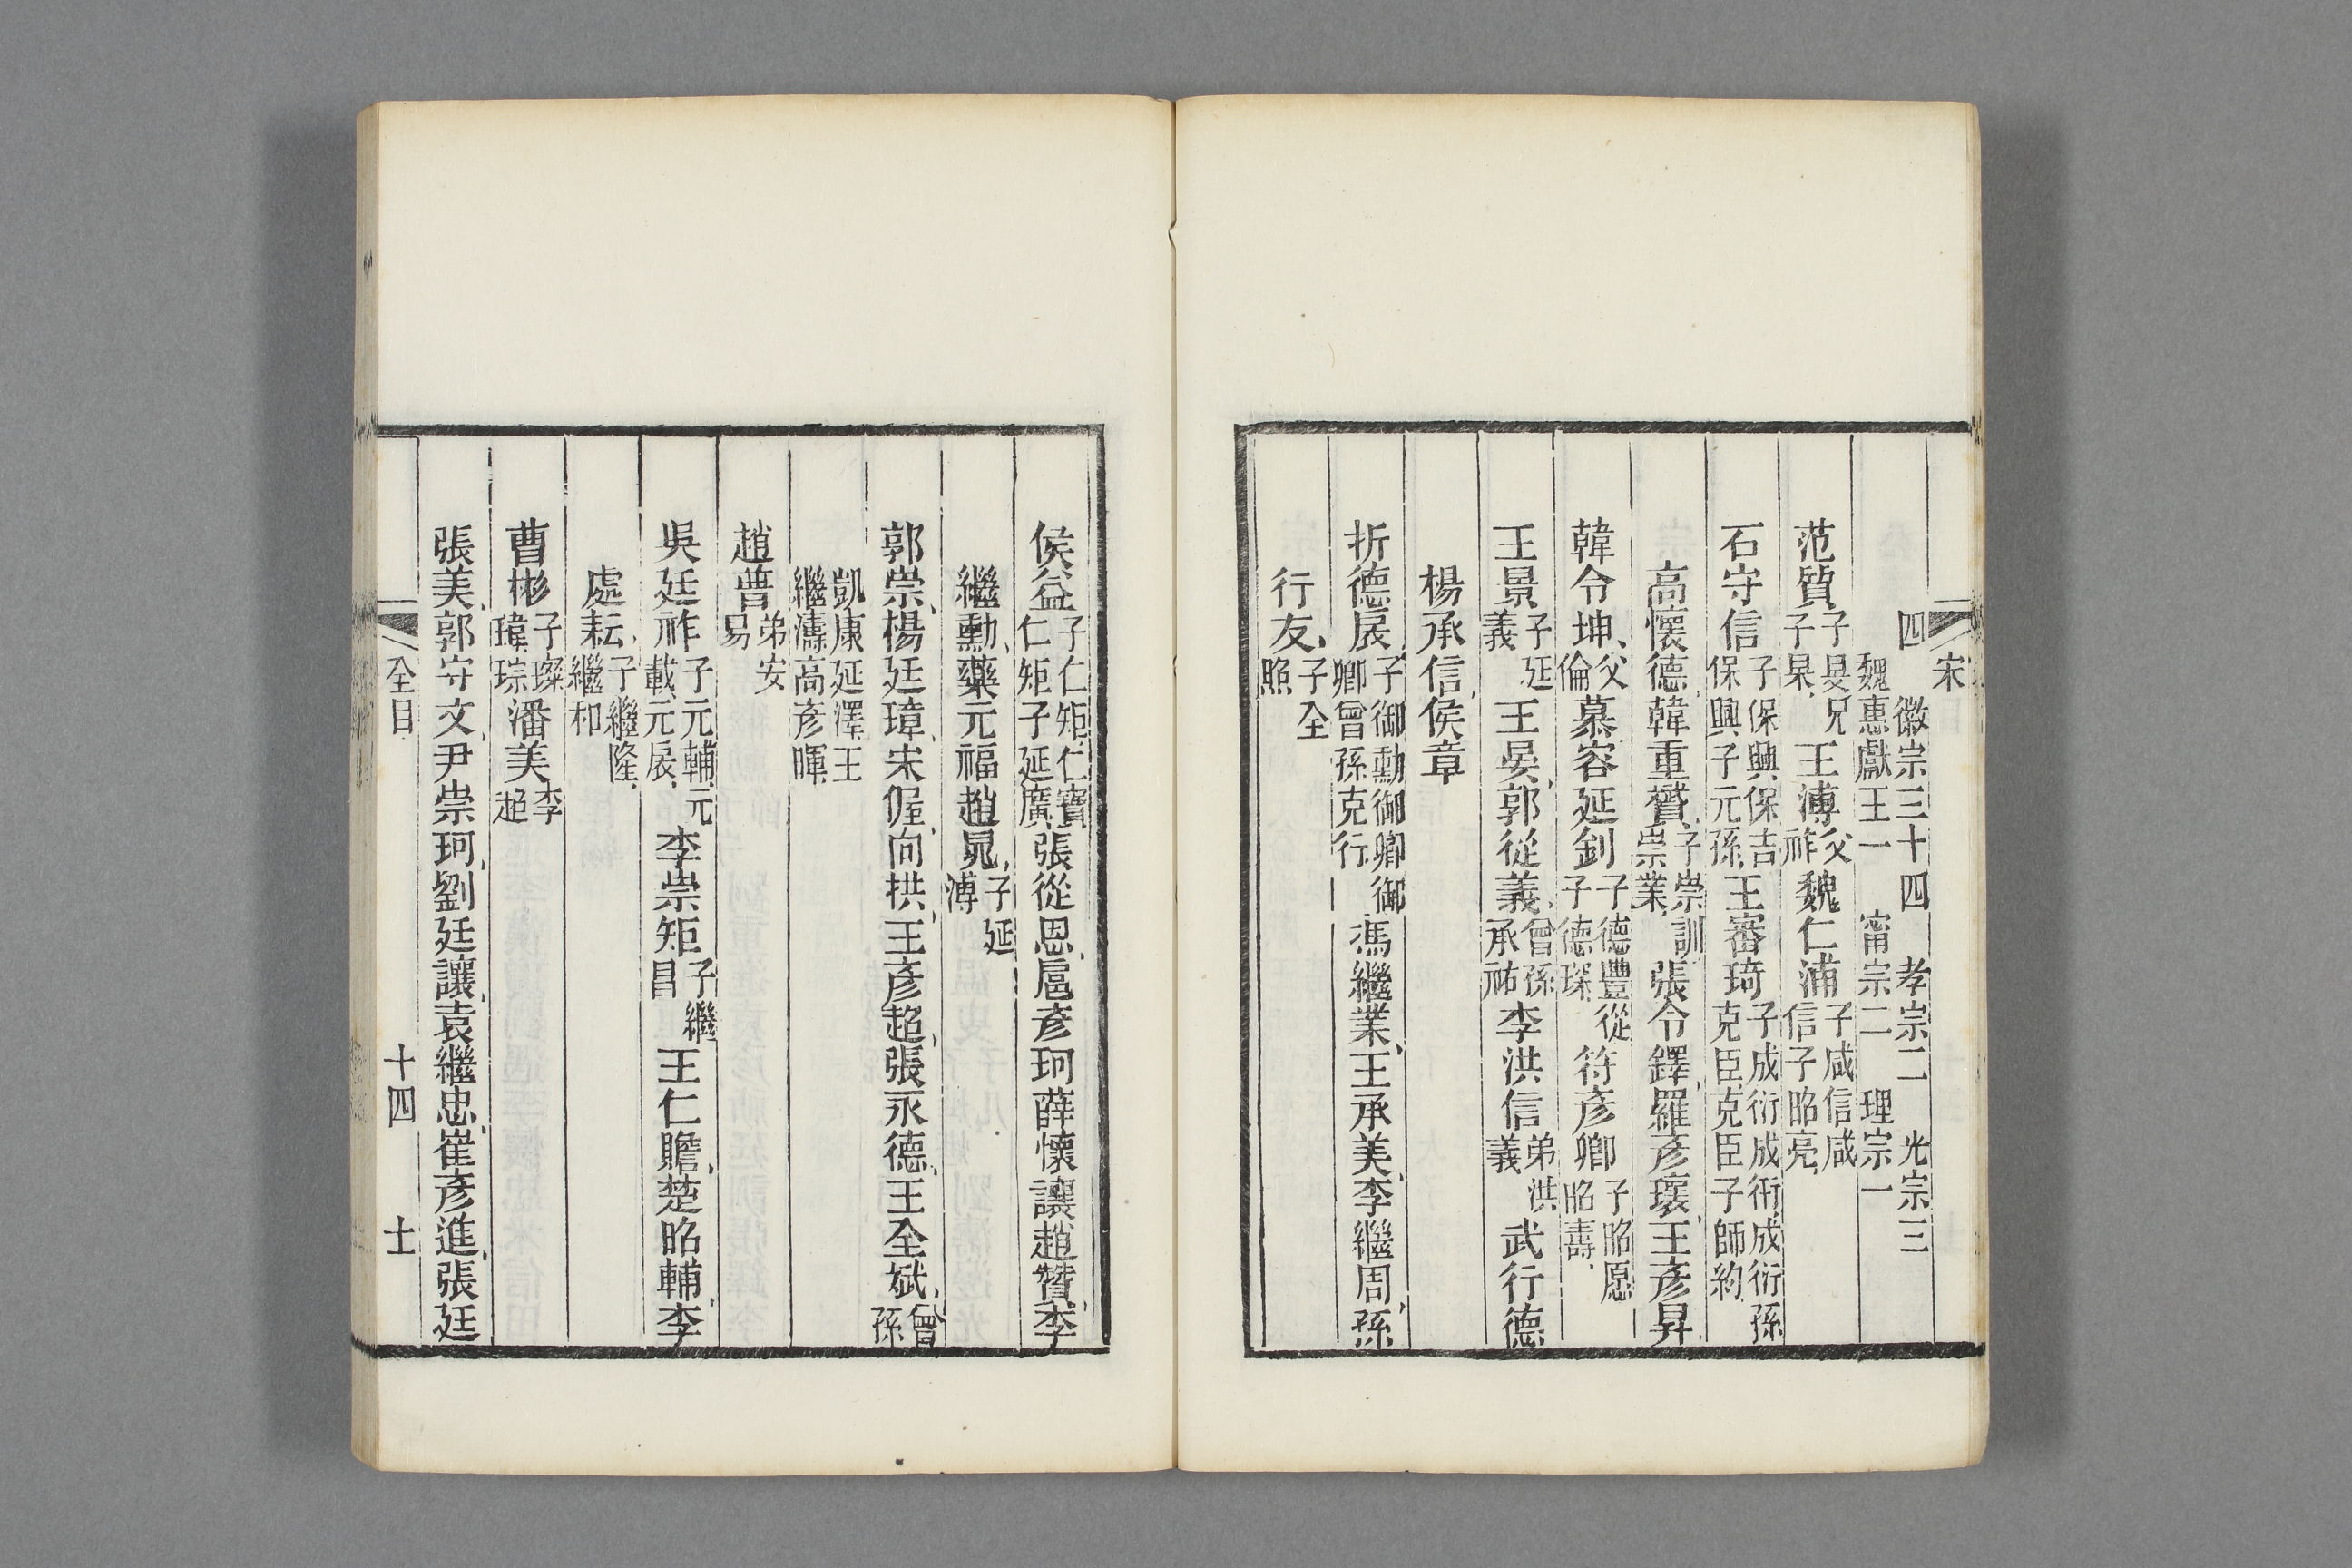 宋
四　徽宗三十四　孝宗二　光宗三
魏惠獻王一　甯宗二　理宗一
范質子旻兄子杲王溥父祚魏仁浦子咸信咸信子昭亮
石守信子保興保吉保興子元孫王審琦子成衍成衎成衍孫克臣克臣子師約
高懷德韓重贇子崇訓崇業張令鐸羅彥瓌王彥昇
韓令坤父倫慕容延釗子德豐從子德琛符彥卿子昭愿昭壽
王景子廷義王晏郭從義曾孫承祐李洪信弟洪義武行德
楊承信侯章
折德扆子御勳御卿御卿曾孫克行馮繼業王承美李繼周孫
行友子全照
侯益子仁矩仁寶仁矩子延廣張從恩扈彥珂薛懷讓趙贊李
繼勳藥元福趙晁子延溥
郭崇楊廷璋宋偓向拱王彥超張永德王全斌曾孫
凱康延澤王繼濤高彥暉
趙普弟安易
吳廷祚子元輔元載元扆李崇矩子繼昌王仁贍楚昭輔李
處耘子繼隆繼和
曹彬子璨瑋琮潘美李超
張美郭守文尹崇珂劉廷讓袁繼忠崔彥進張廷
全目　十四　士